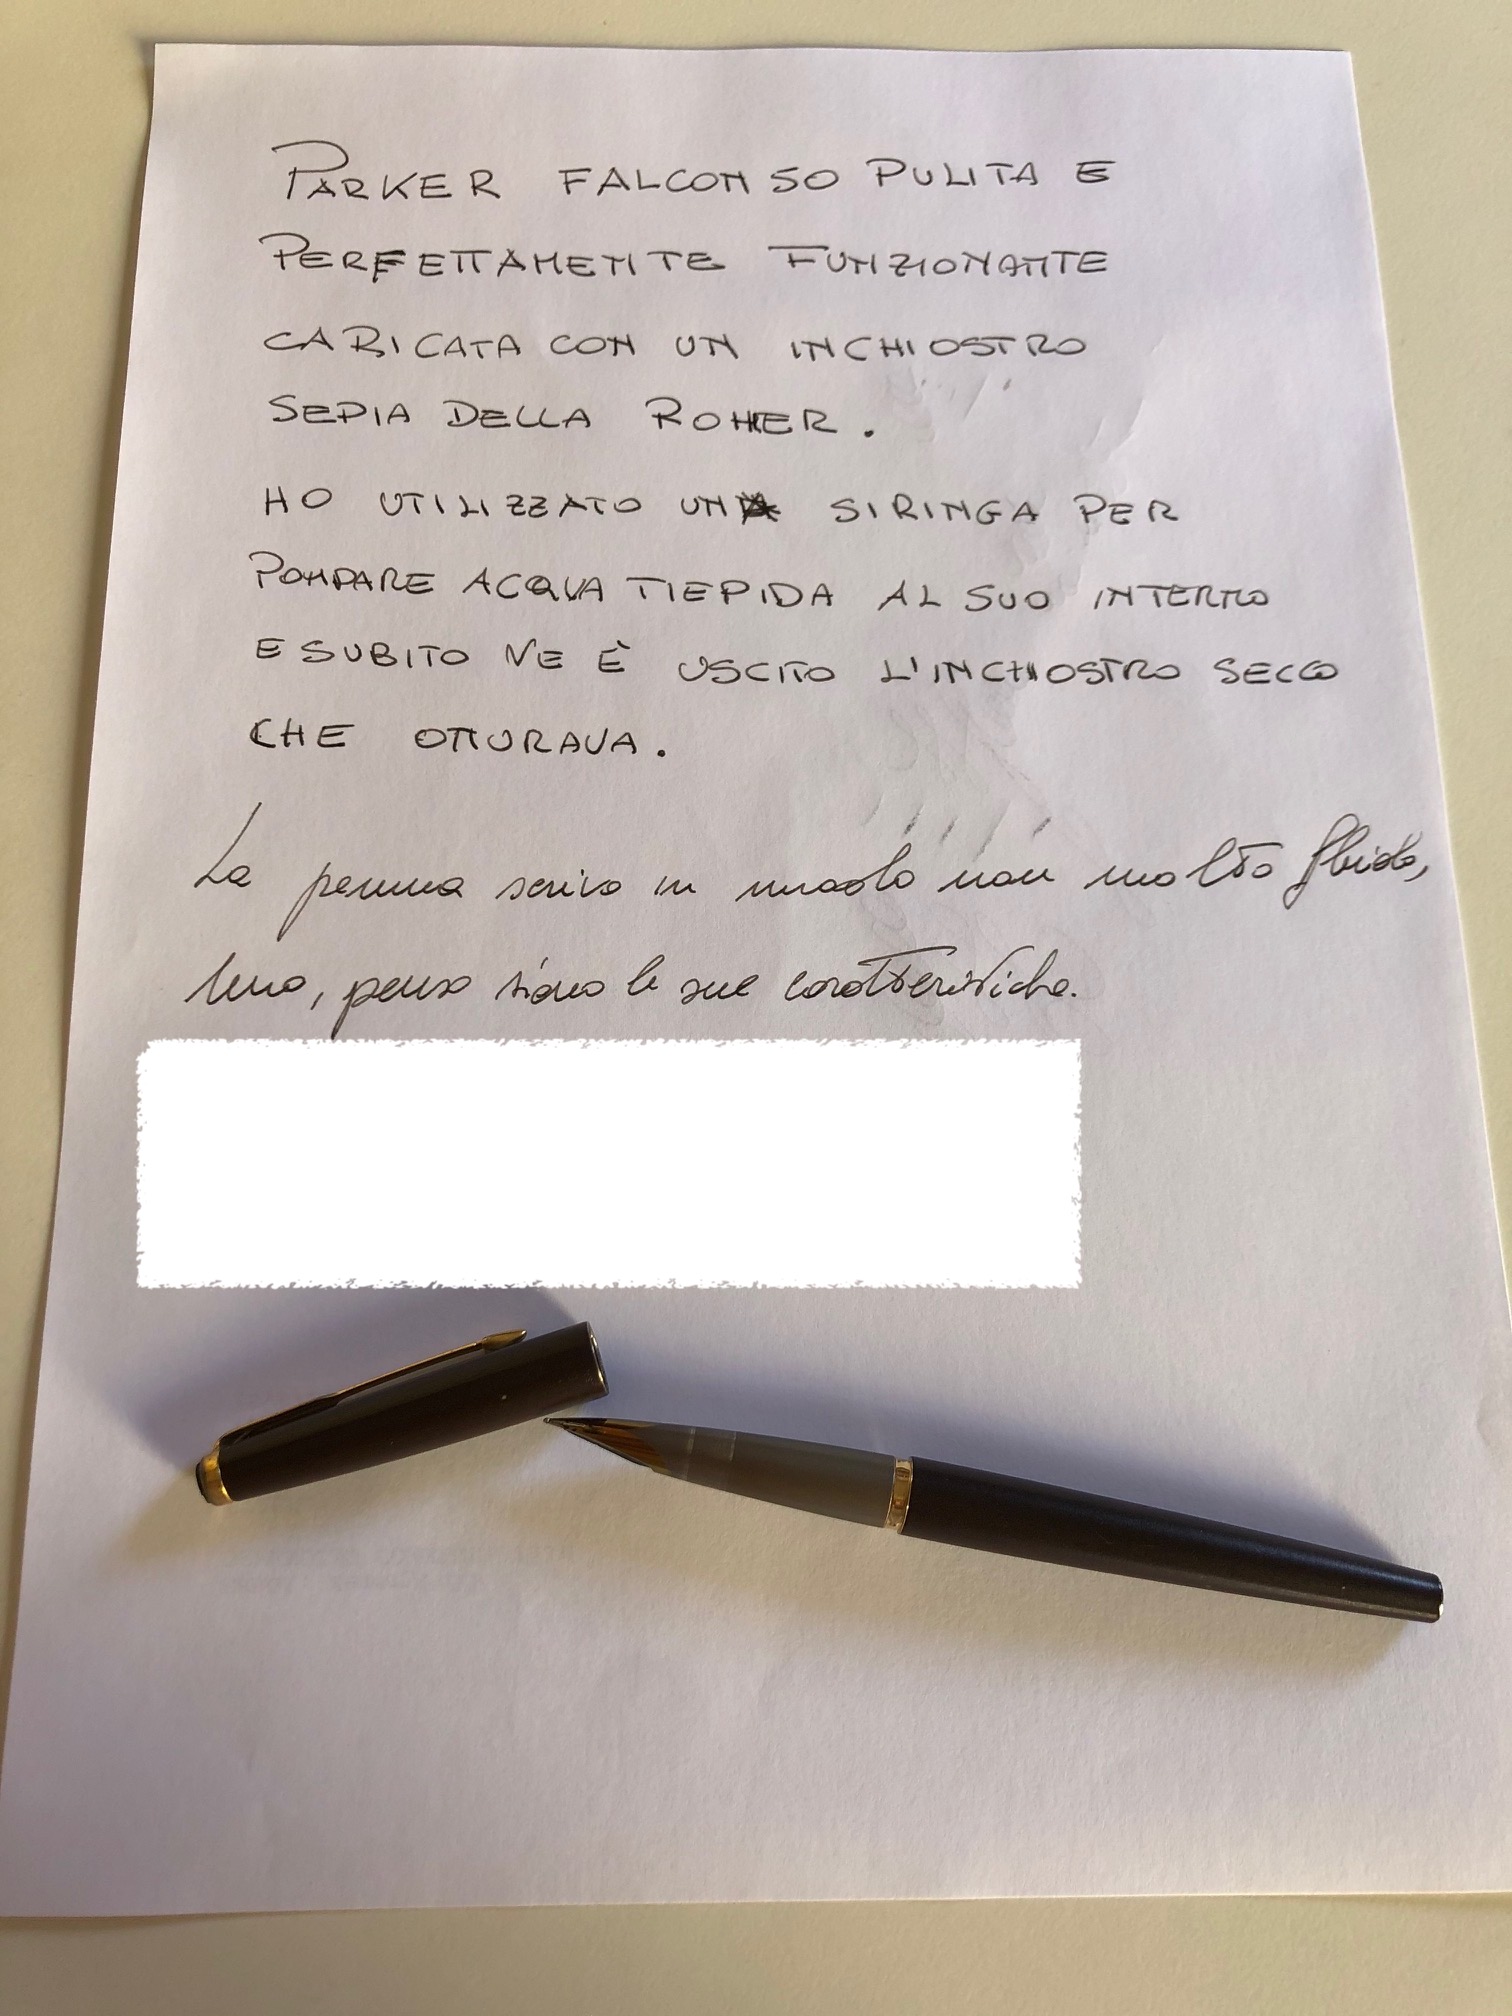 PARKER FALCON 50 PULITA E
PERFETTAMENTE FUNZIONANTE
CARICATA CON UN INCHIOSTRO
SEPIA DELLA ROHER.
HO UTILIZZATO UNA SIRINGA PER
POMPARE ACQUA TIEPIDA AL SUO INTERNO
E SUBITO NE È USCITO L'INCHIOSTRO SECCO
CHE OTTURAVA.
La penna scrive in modo non molto fluido,
penso siano le sue caratteristiche.